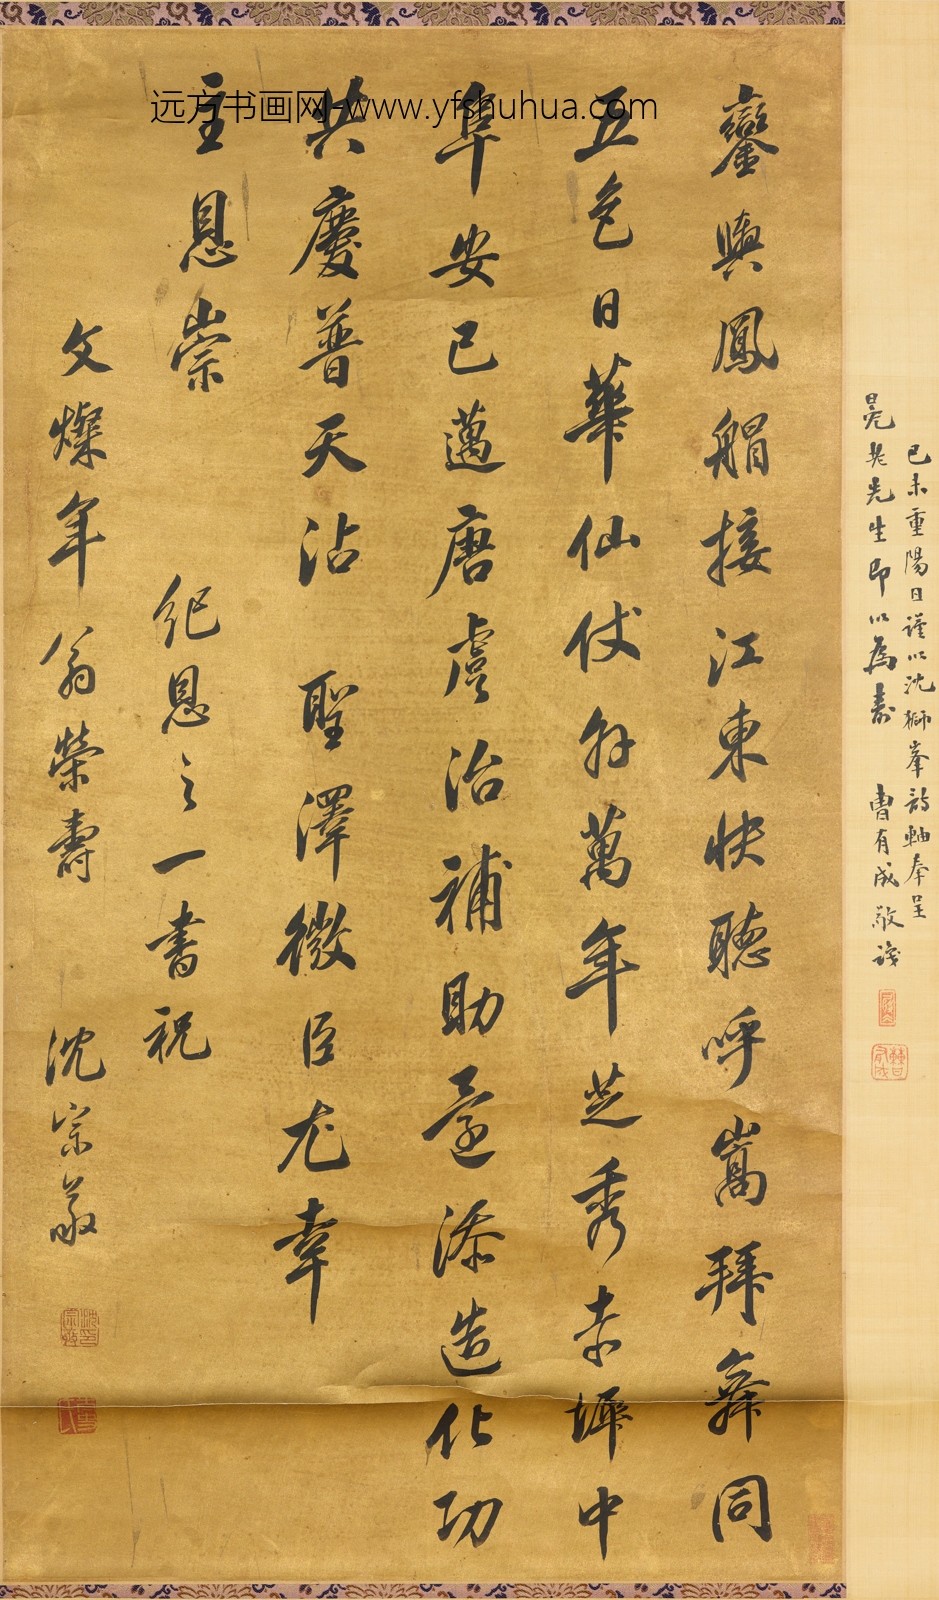 鑾輿鳳艒接江東快聽呼嵩拜舞同
五色日華仙仗外萬年芝秀赤墀中
阜安已邁唐虞治補助還添造化功
共慶普天沾聖澤微臣尤幸
主恩崇
紀恩之一書祝
文燦年翁榮壽
沈宗敬
己未重陽日謹以沈獅峯詩軸奉呈
先生即以為壽 曹有成敬識
远方书画网-www.yfshuhua.com